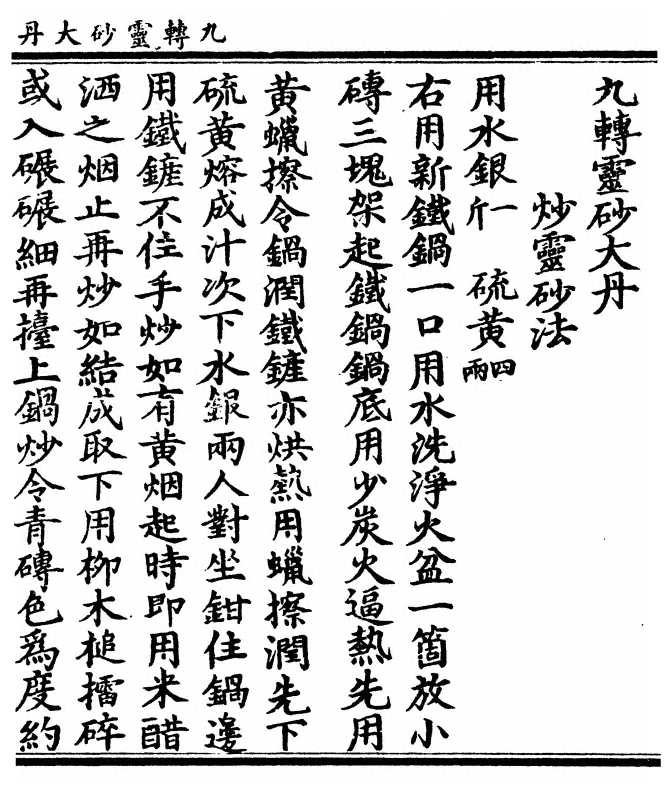 九轉靈砂大丹
九轉靈砂大丹
炒靈砂法
用水銀一斤　硫黃四兩
右用新鐵鍋一口用水洗淨火盆一箇放小
磚三塊架起鐵鍋鍋底用少炭火逼熱先用
黃蠟擦令鍋潤鐵鏟亦烘熱用蠟擦潤先下
硫黃熔成汁次下水銀兩人對坐鉗住鍋邊
用鐵鏟不住手炒如有黃烟起時即用米醋
洒之烟止再炒如結成取下用柳木槌擂碎
或入碾碾細再擡上鍋炒令青磚色爲度約